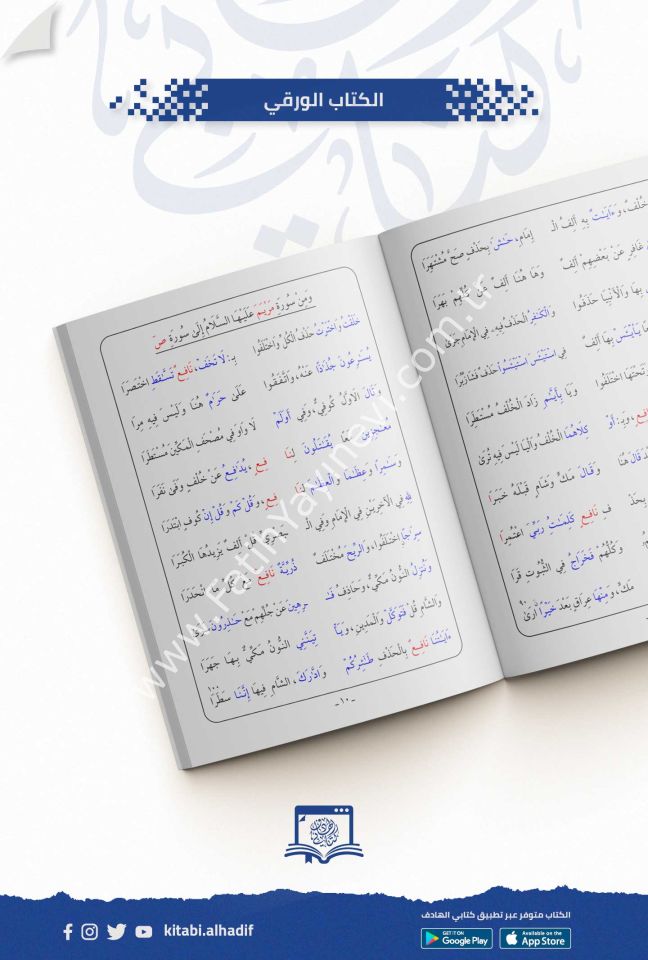 الكتاب الورقي
خُلْفٌ، وَءَايَٰتٌ بِهِ أَلِفُ الْـ إِمَامِ، حَٰشَ بِحَذْفٍ صَحَّ مُشْتَهِرَا
غَافِرٍ عَنْ بَعْضِهِمْ أَلِفٌ وَهَا هُنَا أَلِفٌ عَنْ
بِهَا وَالْأَنْبِيَا حَذَفُوا وَالْكَٰفِرُ الْحَذْفُ فِيهِ فِي الْإِمَامِ جَرَىٰ
يَايْـَٔسِ بِهَا أَلِفٌ فِي اسْتَيْـَٔسَ اسْتَيْـَٔسُوا حَذْفٌ فَشَا زُبُرَا
اخْتَلَفُوا وَيَا بِأَيَّىٰمِ زَادَ الْخُلْفُ مُسْتَطِرَا
أَوْ كِلَاهُمَا الْخُلْفُ وَالْيَا لَيْسَ فِيهِ تُرَىٰ
قَالَ هُنَا وَقَالَ مَكٍّ وَشَامٍ قَبْلَهُ خَبَرَا
نَافِعٍ كَلِمَٰتُ رَبِّيَ اعْتُمِرَا
وَكُلُّهُمْ فَخَرَاجُ فِي الثُّبُوتِ قَرَا
مَكٍّ، وَمِنْهَا عِرَاقٍ بَعْدَ خَيْرًا أَرَىٰ
وَمِنْ سُورَةِ مَرْيَمَ عَلَيْهَا السَّلَامُ إِلَىٰ سُورَةِ صٓ
خَلَقْتُ وَاخْتَرْتُ حَذْفُ الْكُلِّ وَاخْتَلَفُوا بِـ: لَا تَخَفْ، نَافِعٌ تَسَّٰقَطِ اخْتَصَرَا
يُسَٰرِعُونَ جُذَٰذًا عَنْهُ، وَاتَّفَقُوا عَلَىٰ حَرَٰمٌ هُنَا وَلَيْسَ فِيهِ مِرَا
وَقَالَ الَاوَّلُ كُوفِيٌّ، وَفِي أَوَلَمْ لَا وَاوَ فِي مُصْحَفِ الْمَكِّيِّ مُسْتَطَرَا
مُعَٰجِزِينَ مَعًا يُقَٰتَلُونَ لِنَافِعٍ، يُدَٰفِعُ عَنْ خُلْفٍ وَفَىٰ نَفَرَا
وَسَٰمِرًا وَعِظَٰمًا وَالْعِظَٰمَ لِنَافِعٍ، وَقُلْ كَمْ وَقُلْ إِنْ كُوفٍ ابْتَدَرَا
لِلهِ فِي الْآخِرَيْنِ فِي الْإِمَامِ وَفِي الْـ قُلْ أَلِفٌ يَزِيدُهَا الْكُبَرَا
سِرَٰجًا اخْتَلَفُوا، وَالرِّيحَ مُخْتَلَفٌ ذُرِّيَّةٌ نَافِعٌ مَعْ كُلِّ مَا انْحَدَرَا
وَنُنْزِلُ النُّونُ مَكِّيٌّ، وَحَاذِفُ فَٰرِهِينَ عَنْ جُلِّهِمْ مَعْ حَٰذِرُونَ
وَالشَّامِ قُلْ فَتَوَكَّلْ وَالْمَدِينِ، وَيَأْتِيَنَّنِي النُّونُ مَكِّيٌّ بِهَا جَهَرَا
ءَايَٰتُنَا نَافِعٌ بِالْحَذْفِ طَٰٓئِرُكُمْ وَادَّٰرَكَ، الشَّامِ فِيهَا إِنَّنَا سَطَرَا
-١٠-
www.FatihYayinevi.com.tr
الكتاب متوفر عبر تطبيق كتابي الهادف
kitabi.alhadif
GET IT ON
Google Play
Available on the
App Store